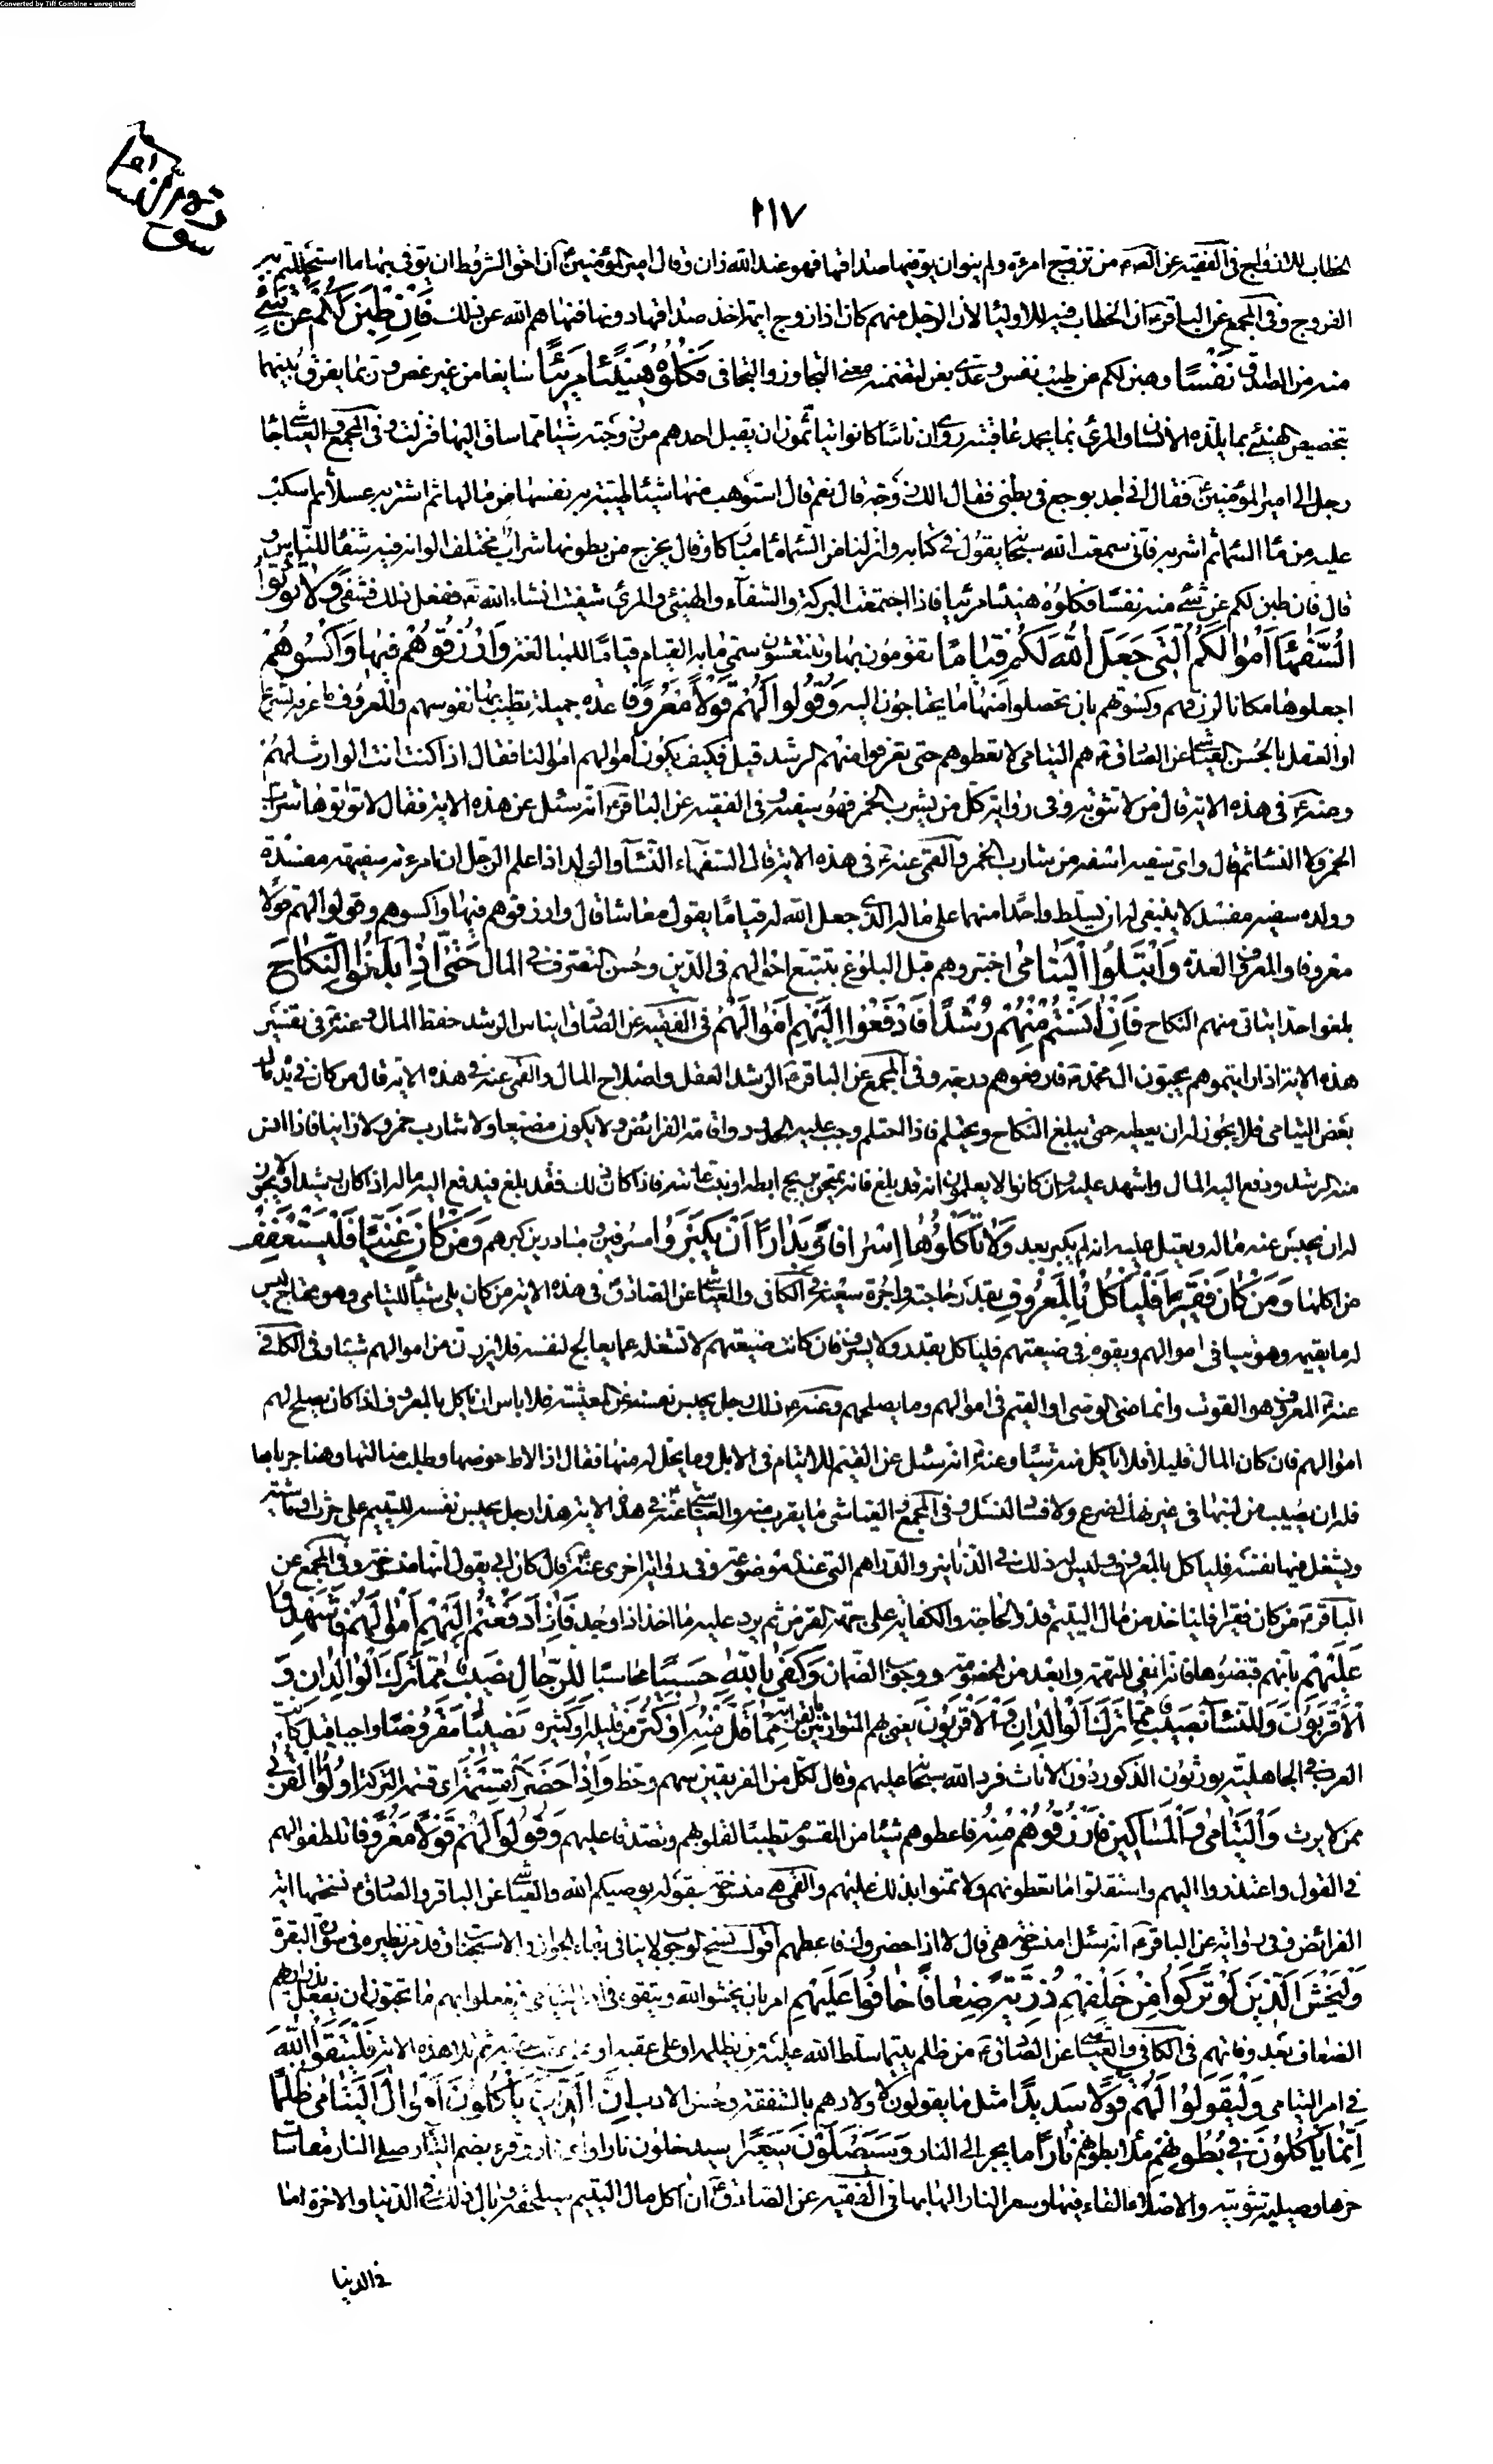 Converted by Tiff Combine - unregistered
٢١٧
الخطاب للازواج في الفقيه عن الصم من تزوج امرءة ولم ينو ان يوفيها صداقها فهو عند الله زان وقال امير المؤمنين ان احق الشروط ان يوفى بها ما استحللتم به
الفروج وفي المجمع عن الباقر ان الخطاب فيه للاوليا لان الرجل منهم كان اذا زوج ايمة اخذ صداقها دونها فنهاهم الله عن ذلك فَاِنْ طِبْنَ لَكُمْ عَنْ شَيْءٍ
منه من الصداق نَفْسًا وهبن لكم عن طيب نفس وعدى بعن لتضمنه معنى التجاوز والتجافى فَكُلُوهُ هَنِيئًا مَرِيئًا سايغا من غير غص وربما يفرق بينهما
بتخصيص الهنيء بما يلذه الانسان والمرىء بما يحمد عاقبته روى ان ناسًا كانوا يتأثمون ان يقبل احدهم من زوجته شيئا مما ساق اليها فنزلت وفي المجمع والعياشى جاء
رجل الى امير المؤمنين فقال انى اجد بوجع في بطنى فقال الك زوجة قال نعم قال استوهب منها شيئا طيبة به نفسها من مالها ثم اشتر به عسلاً ثم اسكب
عليه من ماء السماء ثم اشربه فانى سمعت الله سبحانه يقول في كتابه وانزلنا من السماء ماء مباركا وقال يخرج من بطونها شراب مختلف الوانه فيه شفاء للناس و
قال فان طبن لكم عن شئ منه نفسًا فكلوه هنيئا مريئا فاذا اجتمعت البركة والشفاء والهنيئ والمرئ شفيت انشاء الله تع ففعل ذلك فشفى وَلَا تُؤْتُوا
السُّفَهَاءَ اَمْوَالَكُمُ الَّتِي جَعَلَ اللهُ لَكُمْ قِيَامًا تقومون بها وتنتعشون سمى ما به القيام قيامًا للمبالغة وَارْزُقُوهُمْ فِيهَا وَاكْسُوهُمْ
اجعلوها مكانا لرزقهم وكسوتهم بان تحصلوا منها ما يحتاجون اليه وَقُولُوا لَهُمْ قَوْلًا مَعْرُوفًا عدة جميلة تطيب بها نفوسهم والمعروف ما عرفه الشرع
او العقل بالحسن العياشى عن الصادق هم اليتامى لا تعطوهم حتى تعرفوا منهم الرشد قيل فكيف يكون اموالهم اموالنا فقال اذا كنت انت الوارث لهم
وعنه في هذه الاية قال من لا تثق به وفى رواية كل من يشرب الخمر فهو سفيه وفى الفقيه عن الباقر انه سئل عن هذه الاية فقال لا تؤتوها شراب
الخمر ولا النساء ثم قال واى سفيه اسفه من شارب الخمر والقمى عنه في هذه الاية قال السفهاء النساء والولد اذا علم الرجل ان امرءته سفيهة مفسدة
وولده سفيه مفسد لا ينبغى له ان يسلط واحدًا منهما على ماله الذى جعل الله له قيامًا يقول معاشا قال وارزقوهم فيها واكسوهم وقولوا لهم قولا
معروفا والمعروف العدة وَابْتَلُوا الْيَتَامَى اختبروهم قبل البلوغ بتتبع احوالهم في الدين وحسن التصرف في المال حَتَّى اِذَا بَلَغُوا النِّكَاحَ
بلغوا حدا يتاتى منهم النكاح فَاِنْ اٰنَسْتُمْ مِنْهُمْ رُشْدًا فَادْفَعُوا اِلَيْهِمْ اَمْوَالَهُمْ في الفقيه عن الصادق ايناس الرشد حفظ المال وعنه في تفسير
هذه الاية اذا رايتموهم يحبون ال محمد فارفعوهم درجة وفى المجمع عن الباقر الرشد العقل واصلاح المال والقمى عنه في هذه الاية قال من كان في يده مال
بعض اليتامى فلا يجوز له ان يعطيه حتى يبلغ النكاح ويحتلم فاذا احتلم وجب عليه الحدود واقامة الفرائض ولا يكون مضيعا ولا شارب خمر ولا زانيا فاذا انس
منه الرشد ودفع اليه المال واشهد عليه وان كانوا لا يعلمون انه قد بلغ فانه يمتحن بريح ابطه او نبت عانته فاذا كان ذلك فقد بلغ فيدفع اليه ماله اذا كان رشيدا ولا يجوز
له ان يحبس عنه ماله ويعتل عليه انه لم يكبر بعد وَلَا تَأْكُلُوهَا اِسْرَافًا وَبِدَارًا اَنْ يَكْبَرُوا مسرفين ومبادرين كبرهم وَمَنْ كَانَ غَنِيًّا فَلْيَسْتَعْفِفْ
من اكلها وَمَنْ كَانَ فَقِيرًا فَلْيَأْكُلْ بِالْمَعْرُوفِ بقدر حاجته واجرة سعيه في الكافى والعياشى عن الصادق في هذه الاية من كان يلى شيئا لليتامى وهو محتاج ليس
له ما يقيمه وهو يتقاضى اموالهم ويقوم في ضيعتهم فلياكل بقدر ولا يسرف فان كانت ضيعتهم لا تشغله عما يعالج لنفسه فلا يرزان من اموالهم شيئا وفى الكافى
عنه المعروف هو القوت وانما عنى الوصى او القيم في اموالهم وما يصلحهم وعنه ذلك رجل يحبس نفسه عن المعيشة فلا باس ان ياكل بالمعروف اذا كان يصلح لهم
اموالهم فان كان المال قليلا فلا ياكل منه شيئا وعنه انه سئل عن القيم للايتام في الابل وما يحل له منها فقال اذا لاط حوضها وطلب ضالتها وهنا جرباها
فله ان يصيب من لبنها في غير نهك لضرع ولا فساد لنسل وفى المجمع والعياشى ما يقرب منه والعياشى عنه في هذه الاية هذا رجل يحبس نفسه لليتيم على حرث او ماشية
ويشغل فيها نفسه فلياكل بالمعروف وليس له ذلك في الدنانير والدراهم التى عنده موضوعة وفى رواية اخرى عنه قال كان ابى يقول انها منسوخة وفى المجمع عن
الباقر من كان فقيرا فلياخذ من مال اليتيم قدر الحاجة والكفاية على جهة القرض ثم يرد عليه ما اخذ اذا وجد فَاِذَا دَفَعْتُمْ اِلَيْهِمْ اَمْوَالَهُمْ فَاَشْهِدُوا
عَلَيْهِمْ بانهم قبضوها فانه انفى للتهمة وابعد من الخصومة ووجوب الضمان وَكَفَى بِاللهِ حَسِيبًا محاسبا لِلرِّجَالِ نَصِيبٌ مِمَّا تَرَكَ الْوَالِدَانِ وَ
الْاَقْرَبُونَ وَلِلنِّسَاءِ نَصِيبٌ مِمَّا تَرَكَ الْوَالِدَانِ وَالْاَقْرَبُونَ يعنى بهم المتوارثين بالقرابة مِمَّا قَلَّ مِنْهُ اَوْ كَثُرَ من قليله وكثيره نَصِيبًا مَفْرُوضًا واجبا قيل كانت
العرب في الجاهلية يورثون الذكور دون الاناث فرد الله سبحانه عليهم وقال لكل من الفريقين سهم وحظ وَاِذَا حَضَرَ الْقِسْمَةَ اى قسمة التركة اُولُوا الْقُرْبَى
ممن لا يرث وَالْيَتَامَى وَالْمَسَاكِينُ فَارْزُقُوهُمْ مِنْهُ فاعطوهم شيئا من المقسوم تطييبا لقلوبهم وتصدقا عليهم وَقُولُوا لَهُمْ قَوْلًا مَعْرُوفًا تلطفوا لهم
في القول واعتذروا اليهم واستقلوا ما تعطونهم ولا تمنوا بذلك عليهم والقمى هى منسوخة بقوله يوصيكم الله والعياشى عن الباقر والصادق نسختها اية
الفرائض وفى رواية عن الباقر انه سئل امنسوخة هى قال لا اذا حضروك فاعطهم اقول نسخ الوجوب لا ينافى بقاء الجواز والاستحباب وقد مر نظيره في سورة البقرة
وَلْيَخْشَ الَّذِينَ لَوْ تَرَكُوا مِنْ خَلْفِهِمْ ذُرِّيَّةً ضِعَافًا خَافُوا عَلَيْهِمْ امر بان يخشوا الله ويتقوه في امر اليتامى فيفعلوا بهم ما يحبون ان يفعل بذراريهم
الضعاف بعد وفاتهم في الكافى والعياشى عن الصادق من ظلم يتيما سلط الله عليه من يظلمه او على عقبه او على عقب عقبه ثم تلا هذه الاية فَلْيَتَّقُوا اللهَ
في امر اليتامى وَلْيَقُولُوا لَهُمْ قَوْلًا سَدِيدًا مثل ما يقولون لاولادهم بالشفقة وحسن الادب اِنَّ الَّذِينَ يَأْكُلُونَ اَمْوَالَ الْيَتَامَى ظُلْمًا
اِنَّمَا يَأْكُلُونَ فِي بُطُونِهِمْ ملأ بطونهم نَارًا ما يجر الى النار وَسَيَصْلَوْنَ سَعِيرًا سيدخلون نارا واى نار وقرء بضم الياء وصلى النار مقاسات
حرها وصليته شويته والاصلاء الالقاء فيها وسعر النار الهابها في الفقيه عن الصادق ان اكل مال اليتيم سيلحقه وبال ذلك في الدنيا والاخرة اما
في الدنيا